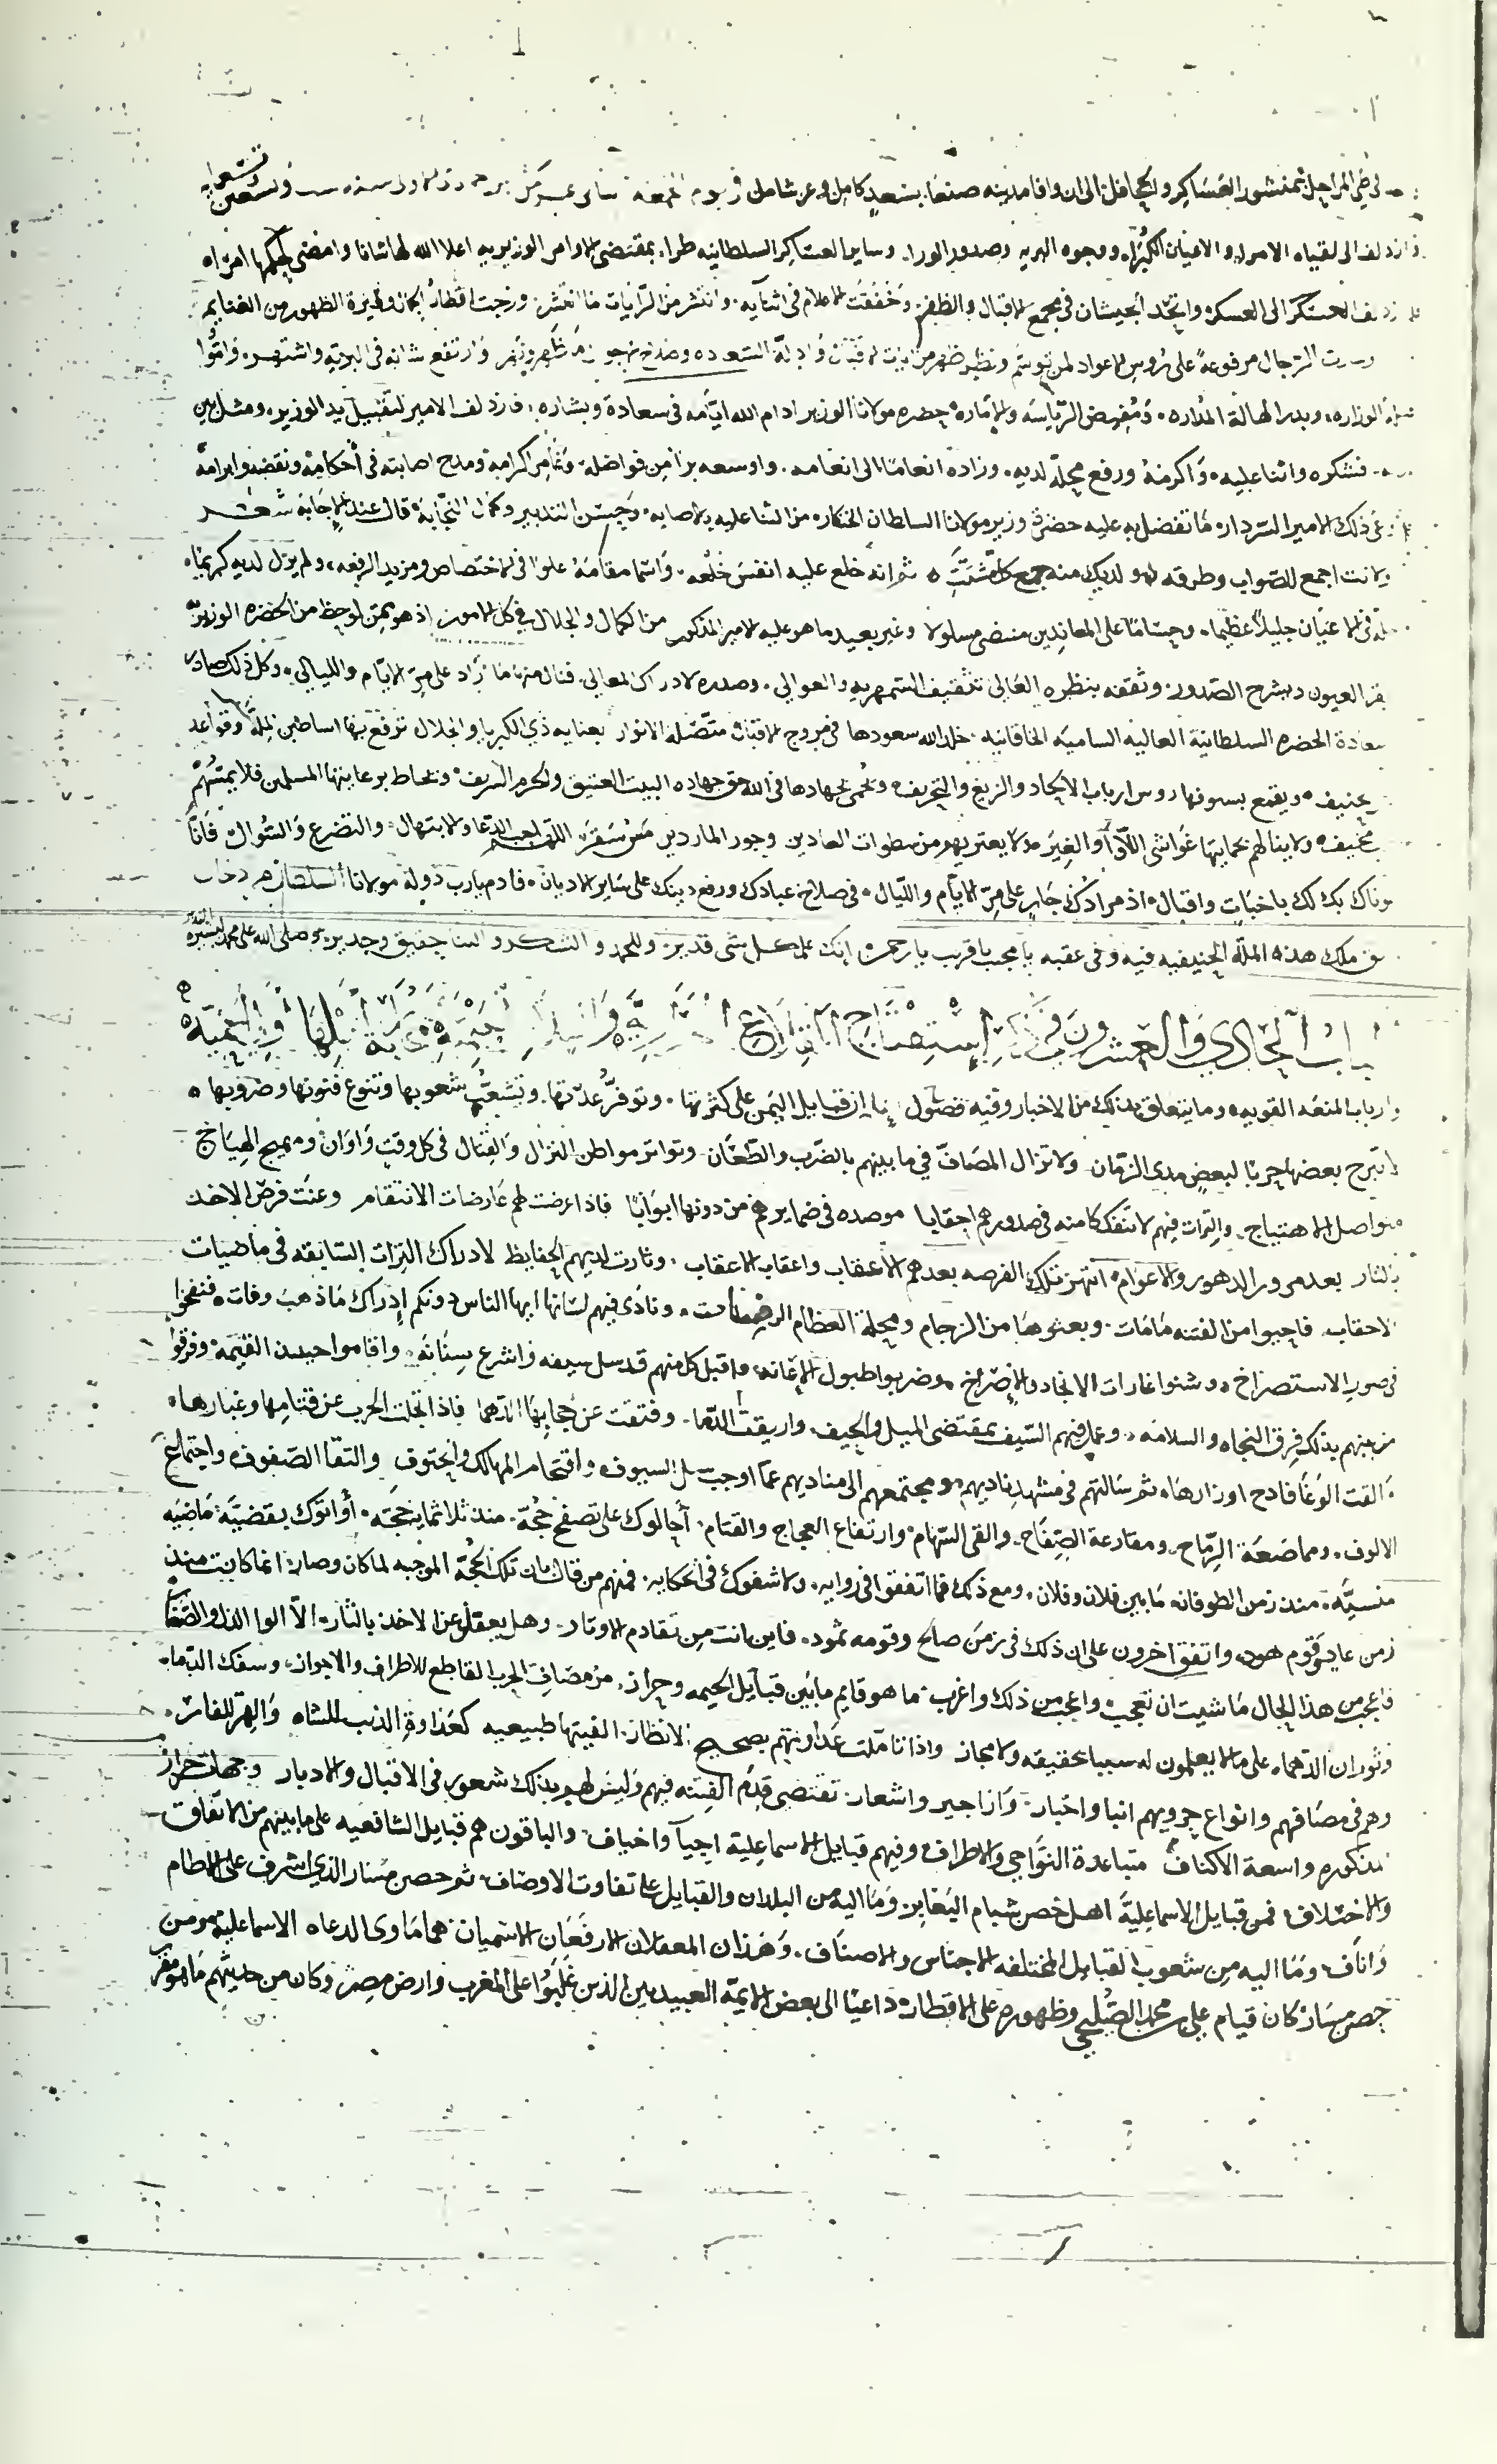 طي المراحل بمنشور العساكر والجحافل الى ان وافا مدينه صنعا بسعد كامل وعز شامل في يوم الجمعه ثاني عشر وتسعين وتسعمايه
فازدلف الى لقياه الامرا والاعيان الكبرا ووجوه البريه وصدور الورا وساير العساكر السلطانيه طرا بمقتضى الاوامر الوزيريه اعلا الله لها شانا وامضى بحكمها امراه
العسكر الى العسكر واتحد الجيشان في مجمع الاقبال والظفر وخفقت الاعلام في اثنايه وانتشر من الرايات ما انتشر
الرجال مرفوعة على روس الاعواد لمن توسم ونظر وارتفع شانه في البريه واشتهر وامّوا
الوزاره وبدر الهالة المداره ومفيض الرياسه والاماره حضره مولانا الوزير ادام الله ايامه في سعادة وبشاره فازدلف الامير لتقبيل يد الوزير ومثل بين
فشكره واثنا عليه واكرمه ورفع محله لديه وزاده انعاما الى انعامه واوسعه برا من فواضله ومدح اصابته في احكامه ونقضه وابرامه
ذلك الامير السردار ما تفضل به عليه حضرة وزير مولانا السلطان من الثنا عليه بالاصابه وحسن التدبير وكمال النجابه قال عند الاجابه شعر
وانت اجمع للصواب وطرقه ولديك منه جمع كل مشتت ثم انه خلع عليه انفس خلعه واسما مقامه علوا في الاختصاص ومزيد الرفعه ولم يزل لديه كريما
في الاعيان جليلا عظيما وحساما على المعاندين منتضى مسلولا وغير بعيد ما هو عليه الامير المذكور من الكمال والجلال في كل الامور اذ هو بمن لوحظ من الحضره الوزيريه
العيون ويشرح الصدور وثقفه بنظره العالي تثقيف السمهريه والعوالي وصدره لادراك المعالي فنال منها ما زاد على مر الايام والليالي وكل ذلك
سعادة الحضره السلطانية العاليه الساميه الخاقانيه خلد الله سعودها في بروج الاقبال متصله الانوار بعنايه ذي الكبريا والجلال ترفع بها اساطين الملة وقواعد
ويقمع بسيوفها روس ارباب الالحاد والزيغ والتحريف وتحمى بجهادها في الله حق جهاده البيت العتيق والحرم الشريف وتحاط برعايتها المسلمين فلا يمسهم
ولا ينالهم بحمايتها غواشي اللاوا والغير ولا يعتريهم من سطوات العادين وجور الماردين مس سقر اللهم اجب الدعا والابتهال والتضرع والسوال فانا
باخبات واقبال اذ مرادك جار على مر الايام والليال في صلاح عبادك ورفع دينك على ساير الاديان فادم يارب دولة مولانا السلطان
ملك هذه الملة الحنيفيه فيه وفي عقبه يا مجيب يا قريب يا رحمن انك على كل شي قدير وللحمد والشكر والثنا حقيق وجدير وصلى الله على محمد
الباب الحادي والعشرون في ذكر استفتاح القلاع اهلها اولي الحمية
وارباب المنعه القويه وما يتعلق بذلك من الاخبار وفيه فصول ان قبايل اليمن على كثرتها وتوفر عدتها وتشعب شعوبها وتنوع فنونها وضروبها
لا تبرح بعضها حربا لبعض مدى الزمان ولا تزال المصاف في ما بينهم بالضرب والطعان وتواتر مواطن النزال والقتال في كل وقت واوان ومهيج الهياج
متواصل الاهتياج والترات فيهم لا تنفك كامنه في صدورهم احقابا موصده في ضمايرهم من دونها ابوابا فاذا عرضت لهم عارضات الانتقام وعنت فرص الاخذ
بالثار بعد مرور الدهور والاعوام انتهز تلك الفرصه بعدهم الاعقاب واعقاب الاعقاب وثارت لديهم الحفايظ لادراك الترات السابقه في ماضيات
الاحقاب فاحيوا من الفتنه ما مات وبعثوها من الرجام ومحلة العظام الرفات ونادى فيهم لسانها ايها الناس دونكم ادراك ما ذهب وفات فنفخوا
في صور الاستصراخ وشنوا غارات الانجاد والاصراخ وضربوا طبول الاغاثه واقبل كل منهم قد سل سيفه واشرع سنانه واقاموا حينئذ القيمة وفرقوا
من بينهم بذلك فرق النجاه والسلامه وعمل فيهم السيف بمقتضى الميل والحيف واريقت الدما وفتقت عن حجابها الدهما فاذا انجلت الحرب عن قتامها وغبارها
والقت الوغا فادح اوزارها ثم سالتهم في مشهد ناديهم ومجتمعهم الى مناديهم عما اوجب سل السيوف واقتحام المهالك والحتوف والتقا الصفوف واجتماع
الالوف ومماصعة الرماح ومقارعة الصفاح والقى السهام وارتفاع العجاج والقتام احالوك على تصفح حجة منذ ثلاثماية حجه او اتوك بقضية ماضيه
منسيه منذ زمن الطوفان ما بين فلان وفلان ومع ذلك فما اتفقوا في روايه ولا شفوك في الحكايه فمنهم من قال بان تلك الحجة الموجبه لما كان وصار انما كانت منذ
زمن عاد قوم هود واتفق اخرون على ان ذلك في زمن صالح وقومه ثمود فاين انت من تقادم الاوتار وهل يعقل عن الاخذ بالثار الا الوا الذل والصغار
فاعجب من هذا الحال ما شيت ان تعجب واعجب من ذلك واغرب ما هو قايم ما بين قبايل الحيمه وحراز من مصاف الحرب القاطع للاطراف والاجواز وسفك الدما
وثوران الدهما على ما لا يعلمون له سببا بحقيقه ولا مجاز واذا تاملت عداوتهم بصحيح الانظار الفيتها طبيعيه كعداوة الذيب للشاه والهر للفار
وهم في مصافهم وانواع حروبهم انبا واخبار وازاجير واشعار تقتضي قدم الفتنه فيهم وليس لهم بذلك شعور في الاقبال والادبار وجهات حراز
المذكوره واسعة الاكناف متباعدة النواحي والاطراف وفيهم قبايل الاسماعلية احيآ واخياف والباقون هم قبايل الشافعيه على ما بينهم من الاتفاق
والاختلاف فمن قبايل الاسماعلية اهل حصن شبام اليعابر وما اليه من البلدان والقبايل على تفاوت الاوصاف ثم حصن مسار الذي اشرف على الاطام
واناف وما اليه من شعوب القبايل المختلفه الاجناس والاصناف وهذان المعقلان الارفعان الاسميان هما ماوى الدعاه الاسماعلية ومن
حصن مسار كان قيام علي بن محمد الصليحي وظهوره على الاقطار داعيا الى بعض الايمة العبيديين الذين غلبوا على المغرب وارض مصر وكان من حديثهم ما هو